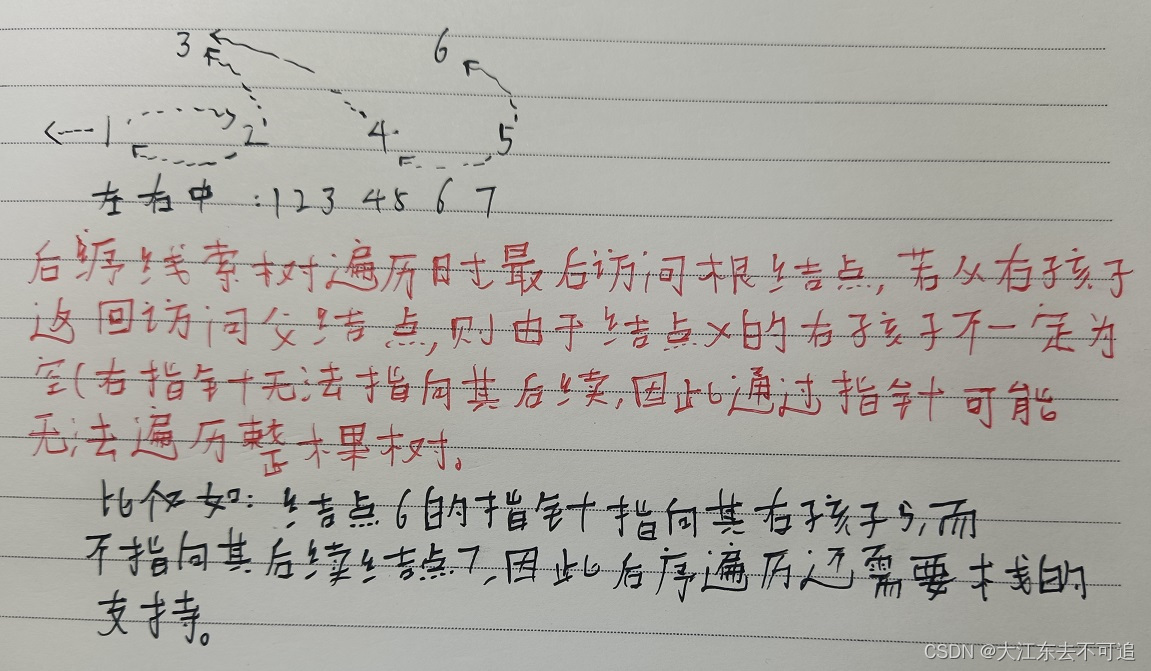 3 6
1 2 4 5
左右中:123 45 6 7
后序线索树遍历时最后访问根结点,若从右子孩子
返回访问父结点,则由于结点X的右子孩子不一定为
空(右指针无法指向其后续,因此通过指针可能
无法遍历整棵树。
比仅如:结点6的指针指向其右子孩子5,而
不指向其后续结点7,因此后序遍历还需要栈的
支持。
CSDN @大江东去不可追